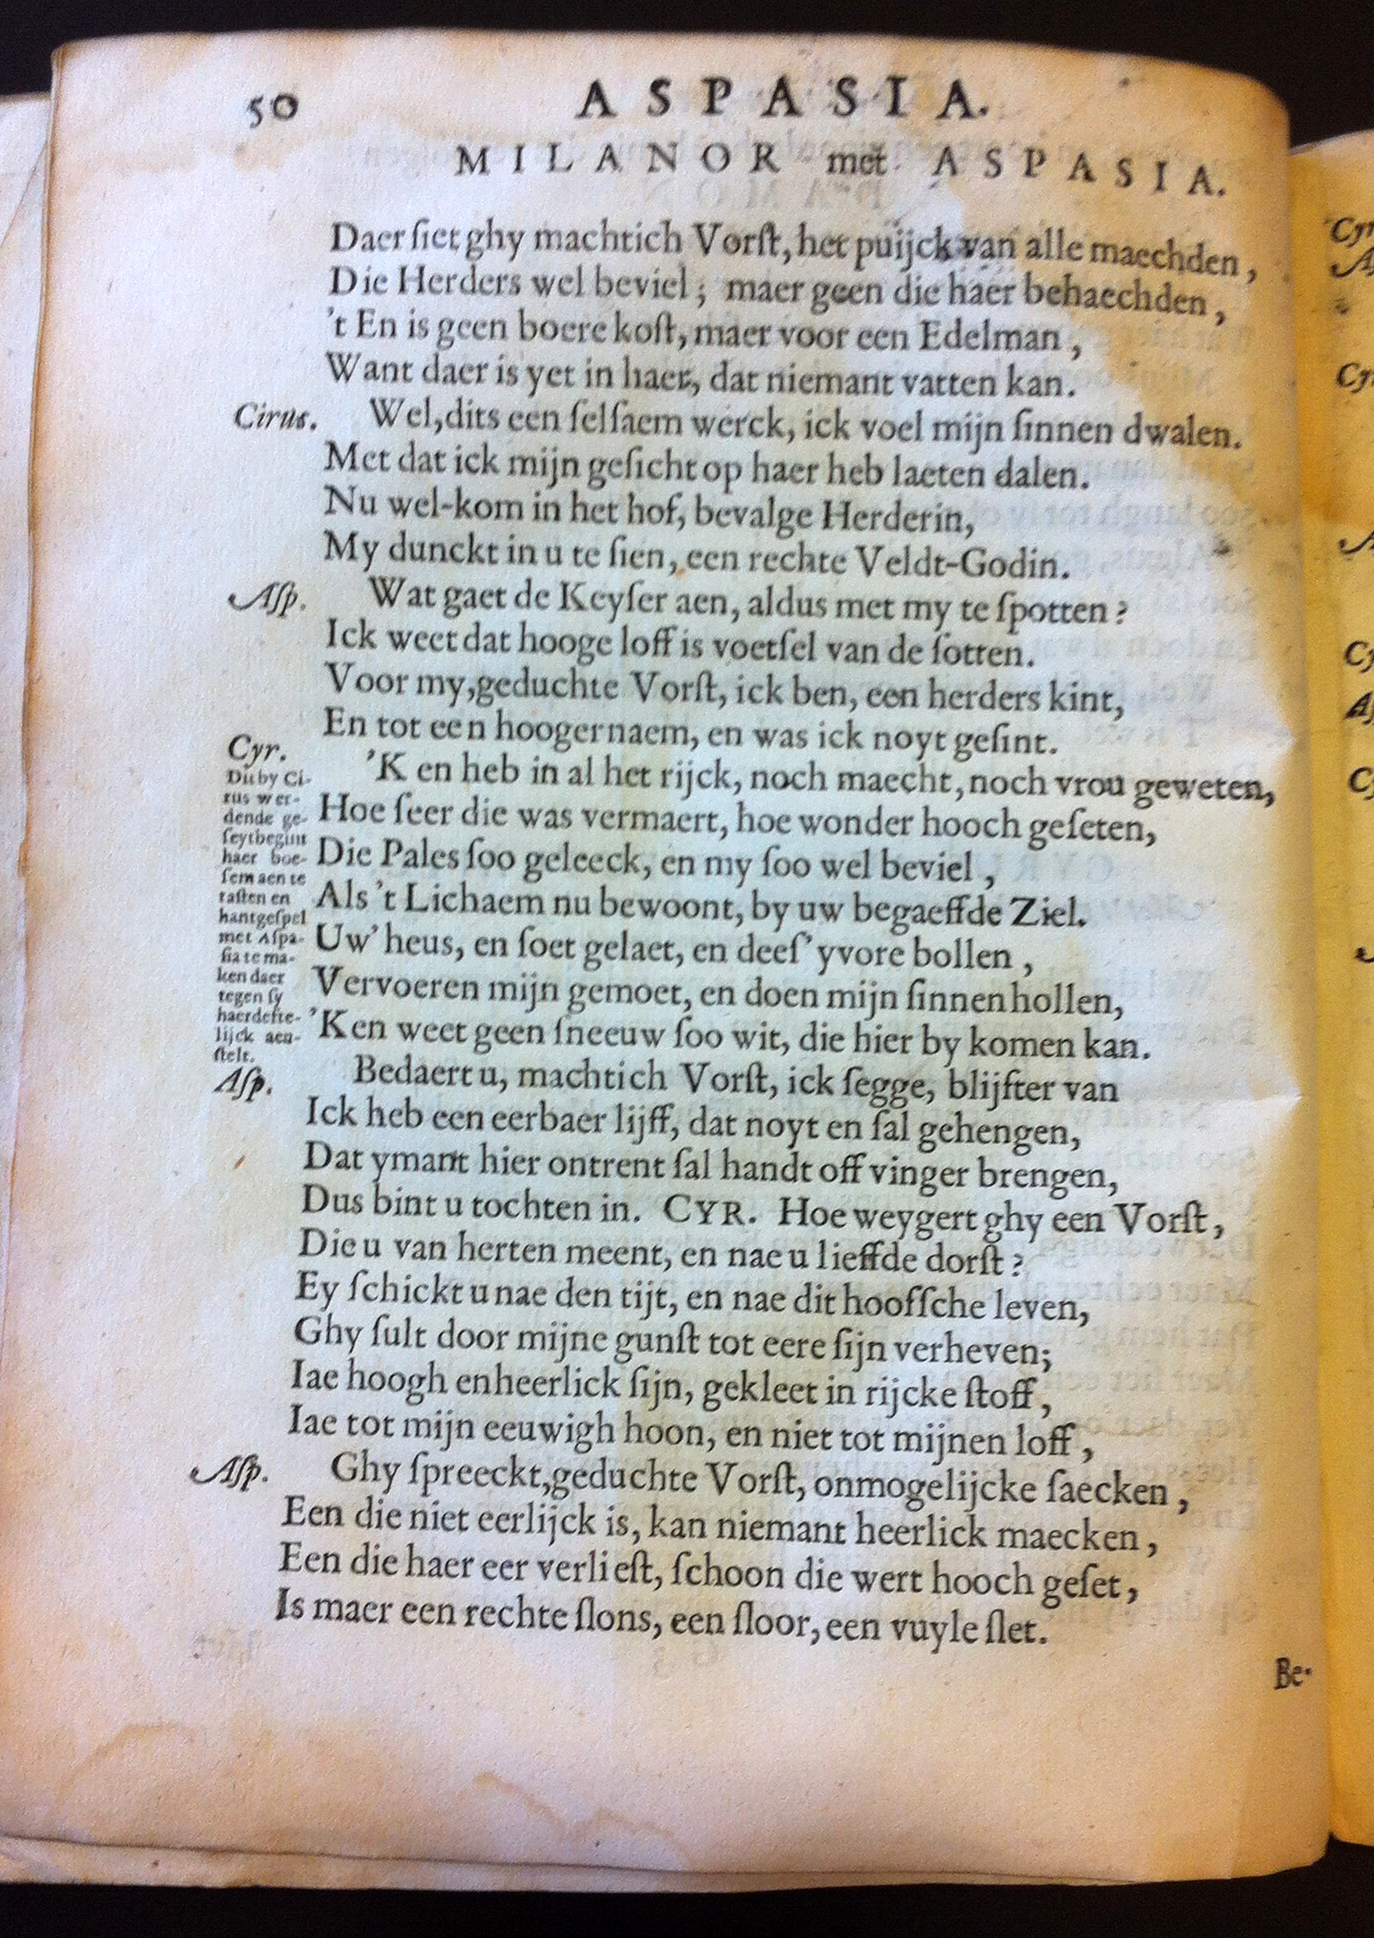 50 ASPASIA.
MILANOR met ASPASIA.
Daer ſiet ghy machtich Vorſt, het puijck van alle maechden,
Die Herders wel beviel; maer geen die haer behaechden,
't En is geen boere koſt, maer voor een Edelman,
Want daer is yet in haer, dat niemant vatten kan.
Cirus. Wel, dits een ſelſaem werck, ick voel mijn ſinnen dwalen.
Met dat ick mijn geſicht op haer heb laeten dalen.
Nu wel-kom in het hof, bevalge Herderin,
My dunckt in u te ſien, een rechte Veldt-Godin.
Aſp. Wat gaet de Keyſer aen, aldus met my te ſpotten?
Ick weet dat hooge loff is voetſel van de ſotten.
Voor my, geduchte Vorſt, ick ben, een herders kint,
En tot een hooger naem, en was ick noyt geſint.
Cyr. 'K en heb in al het rijck, noch maecht, noch vrou geweten,
Hoe ſeer die was vermaert, hoe wonder hooch geſeten,
Die Pales ſoo geleeck, en my ſoo wel beviel,
Als 't Lichaem nu bewoont, by uw begaeffde Ziel.
Uw' heus, en ſoet gelaet, en deeſ' yvore bollen,
Vervoeren mijn gemoet, en doen mijn ſinnen hollen,
'Ken weet geen ſneeuw ſoo wit, die hier by komen kan.
Dit by Ci-
rus wer-
dende ge-
ſeyt begint
haer boe-
ſem aen te
taſten en
hantgeſpel
met Aſpa-
ſia te ma-
ken daer
tegen ſy
haer defte-
lijck aen-
ſtelt.
Aſp. Bedaert u, machtich Vorſt, ick ſegge, blijfter van
Ick heb een eerbaer lijff, dat noyt en ſal gehengen,
Dat ymant hier ontrent ſal handt off vinger brengen,
Dus bint u tochten in. CYR. Hoe weygert ghy een Vorſt,
Die u van herten meent, en nae u lieffde dorſt?
Ey ſchickt u nae den tijt, en nae dit hoofſche leven,
Ghy ſult door mijne gunſt tot eere ſijn verheven;
Iae hoogh en heerlick ſijn, gekleet in rijcke ſtoff,
Iae tot mijn eeuwigh hoon, en niet tot mijnen loff,
Aſp. Ghy ſpreeckt, geduchte Vorſt, onmogelijcke ſaecken,
Een die niet eerlijck is, kan niemant heerlick maecken,
Een die haer eer verlieſt, ſchoon die wert hooch geſet,
Is maer een rechte ſlons, een ſloor, een vuyle ſlet.
Be-